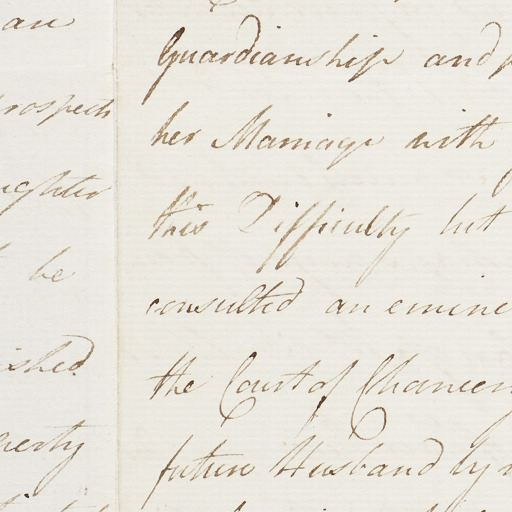 an
prospects
daughter
be
ished
perty
Guardianship and p
her Marriage with
this Difficulty but
consulted an emine
the Court of Chancery
future Husband by